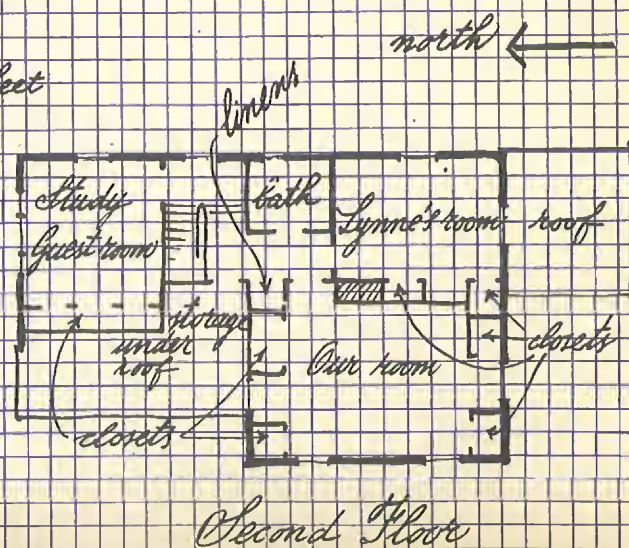 north
linens
Study
Guest room
bath
Lynne's room
roof
storage
under
roof
Our room
closets
closets
Second Floor